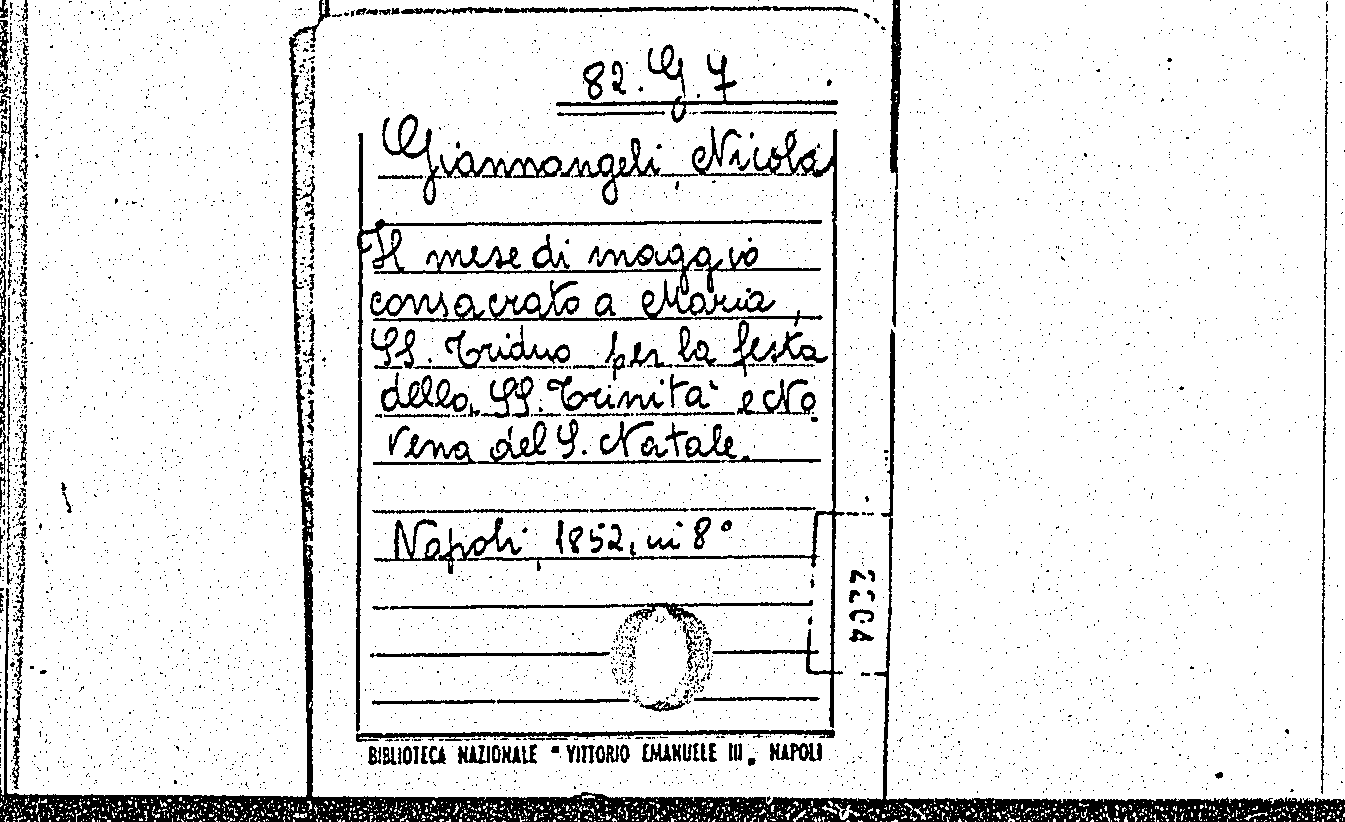 82.G.7
Giannangeli, Nicola
Il mese di maggio
consacrato a Maria,
SS. Triduo per la festa
della SS. Trinità e No
vena del S. Natale.
Napoli, 1852, in 8°
BIBLIOTECA NAZIONALE " VITTORIO EMANUELE III „ NAPOLI